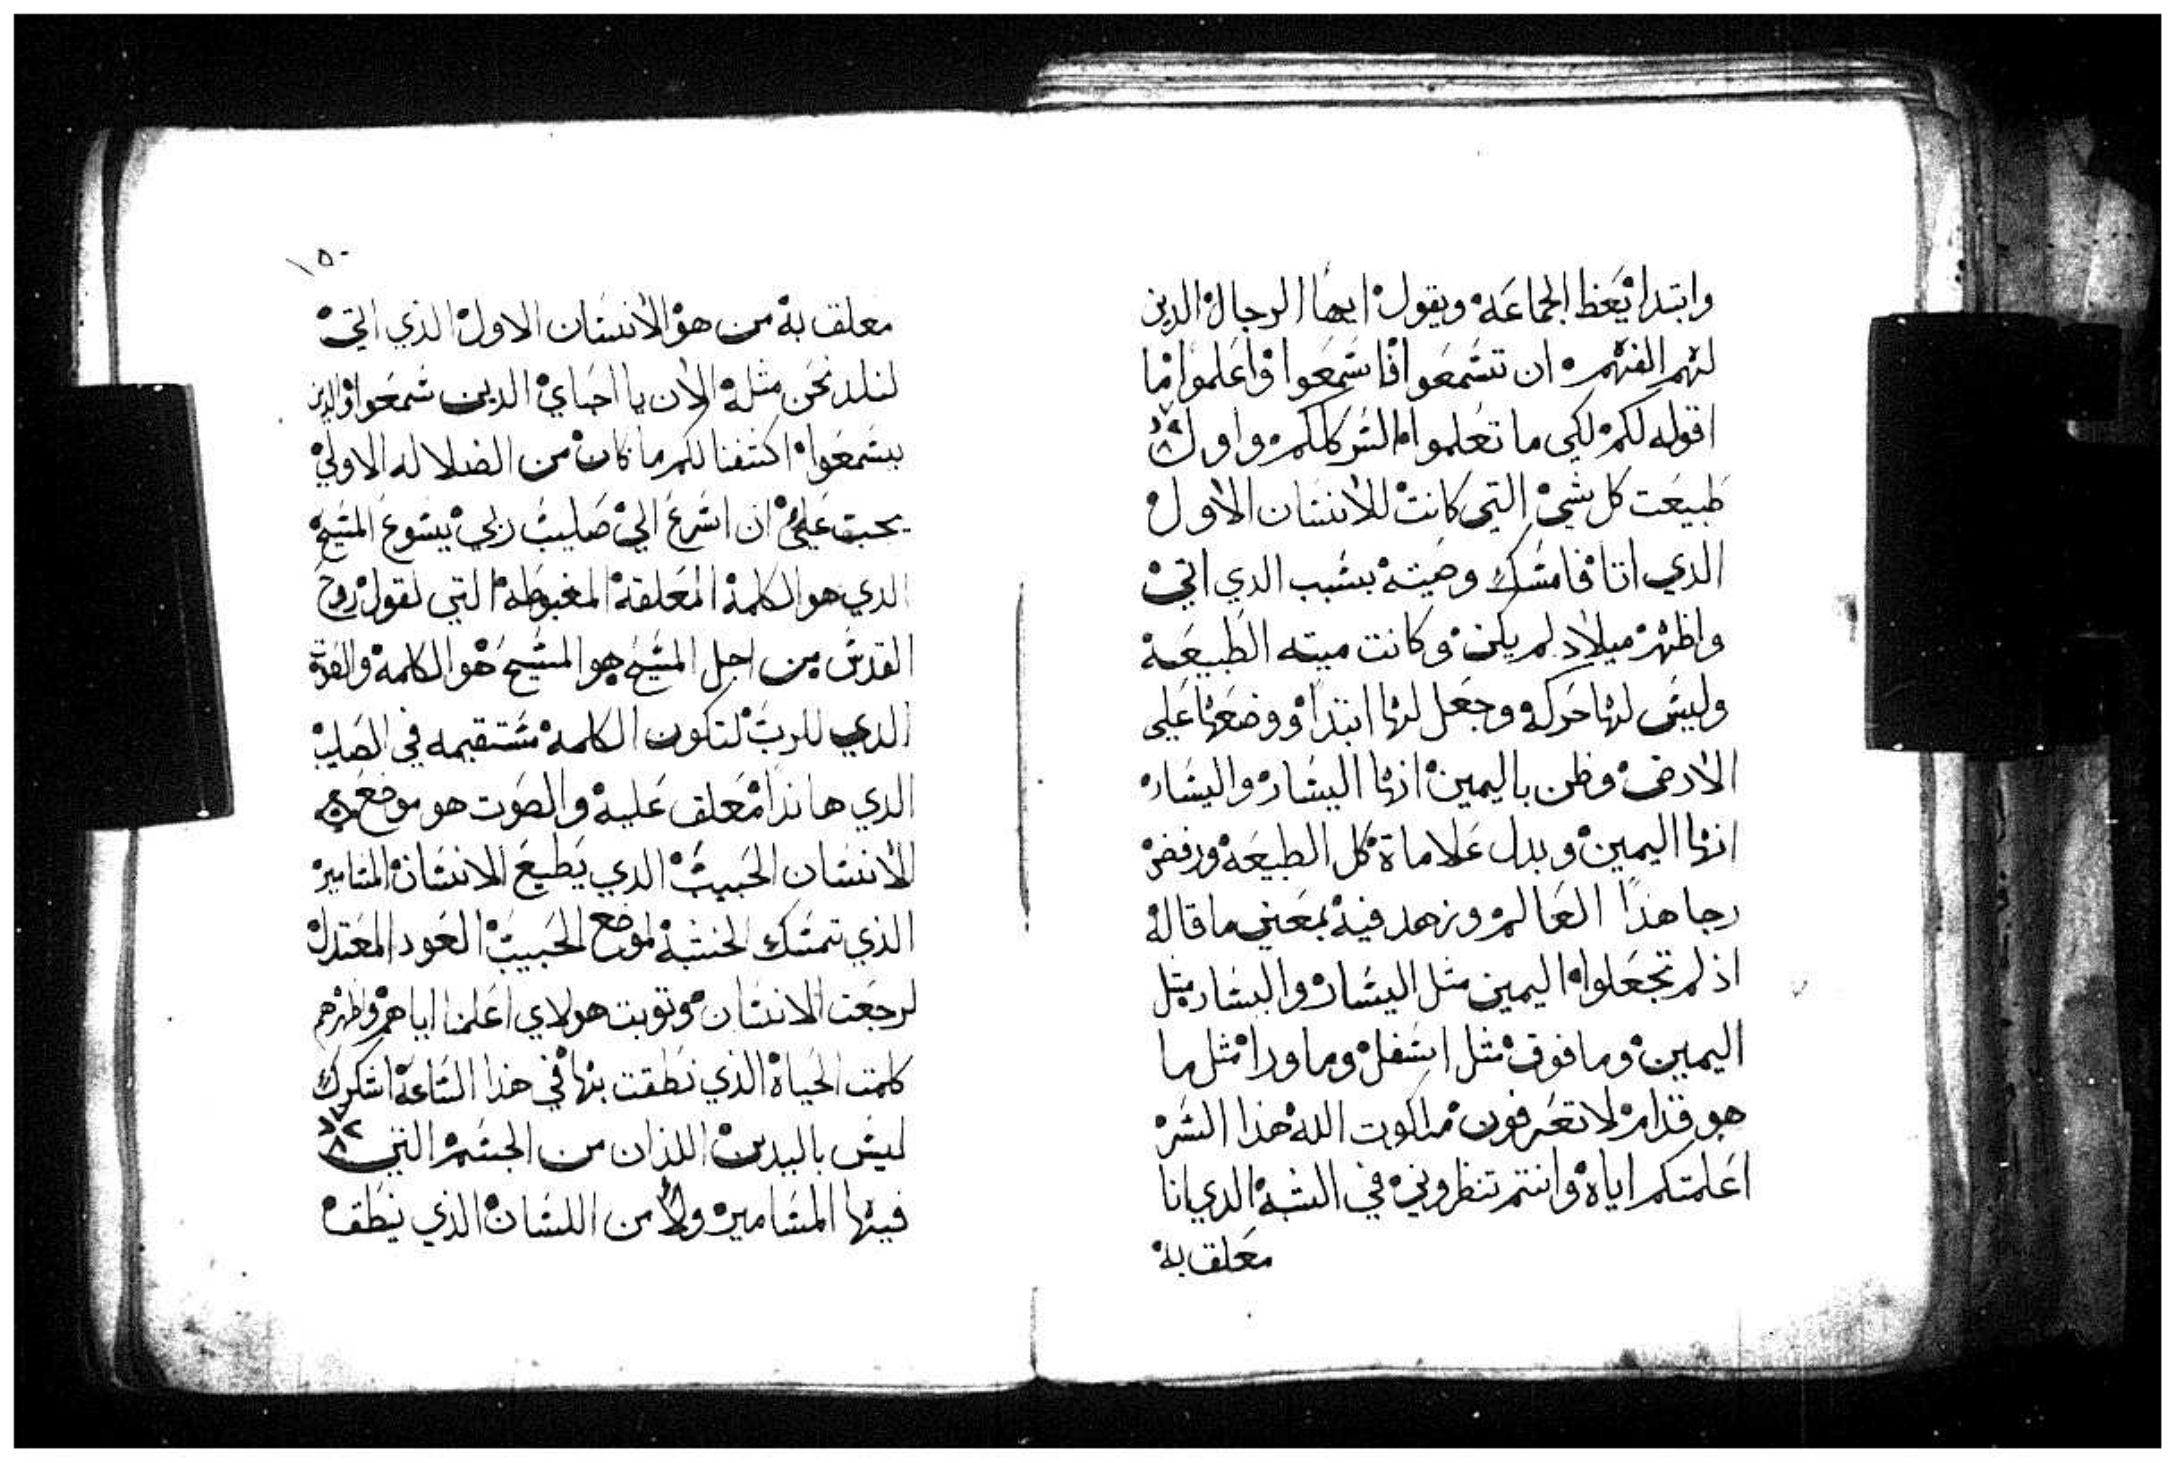 وابتدا يعظ الجماعة ويقول ايها الرجال الدين
لهم الفهم ان تسمعوا فاسمعوا واعلموا ما
اقوله لكم لكي ما تعلموا السر كلكم واول
طبيعت كل شي التي كانت للانسان الاول
الدي اتا فامسك وصيته بسبب الدي اتي
واظهر ميلاد لم يكن وكانت ميته الطبيعة
وليس لها حركه وجعل لها ابتدا ووضعها علي
الارض وظن باليمين انها اليسار واليسار
انها اليمين وبدل علاماة كل الطبيعه ورفض
رجا هذا العالم وزهد فيه بمعني ما قاله
اذ لم تجعلوا اليمين مثل اليسار واليسار مثل
اليمين وما فوق مثل اسفل وما ورا مثل ما
هو قدام لا تعرفون ملكوت الله هذا السر
اعلمتكم اياه وانتم تنظروني في الشبه الدي انا
معلق به
١٥٠
معلق به من هو الانسان الاول الذي اتي
لنلد نحن مثله الان يا احباي الدين سمعوا والدين
يسمعوا اكشفنا لكم ما كان من الضلاله الاولي
يجب علي ان اسرع الي صليب ربي يسوع المسيح
الدي هو الكلمة المعلقة المغبوطه التي تقول روح
القدس من اجل المسيح هو المسيح هو الكلمة والقوة
الدي للرب لتكون الكلمة مستقيمه في الصليب
الدي هاندا معلق عليه والصوت هو موضع
الانسان الحبيب الدي يطيع الانسان المسامير
الذي تمسك الخشبة لموضع الحبيب العود المعتدل
لرجعت الانسان وتوبت هولاي اعلمنا اياهم واظهرهم
كلمت الحياة الذي نطقت بها في هذا الساعة اشكرك
ليس باليدين اللذان من الجسم التي
فيها المسامير ولا من اللسان الذي نطق